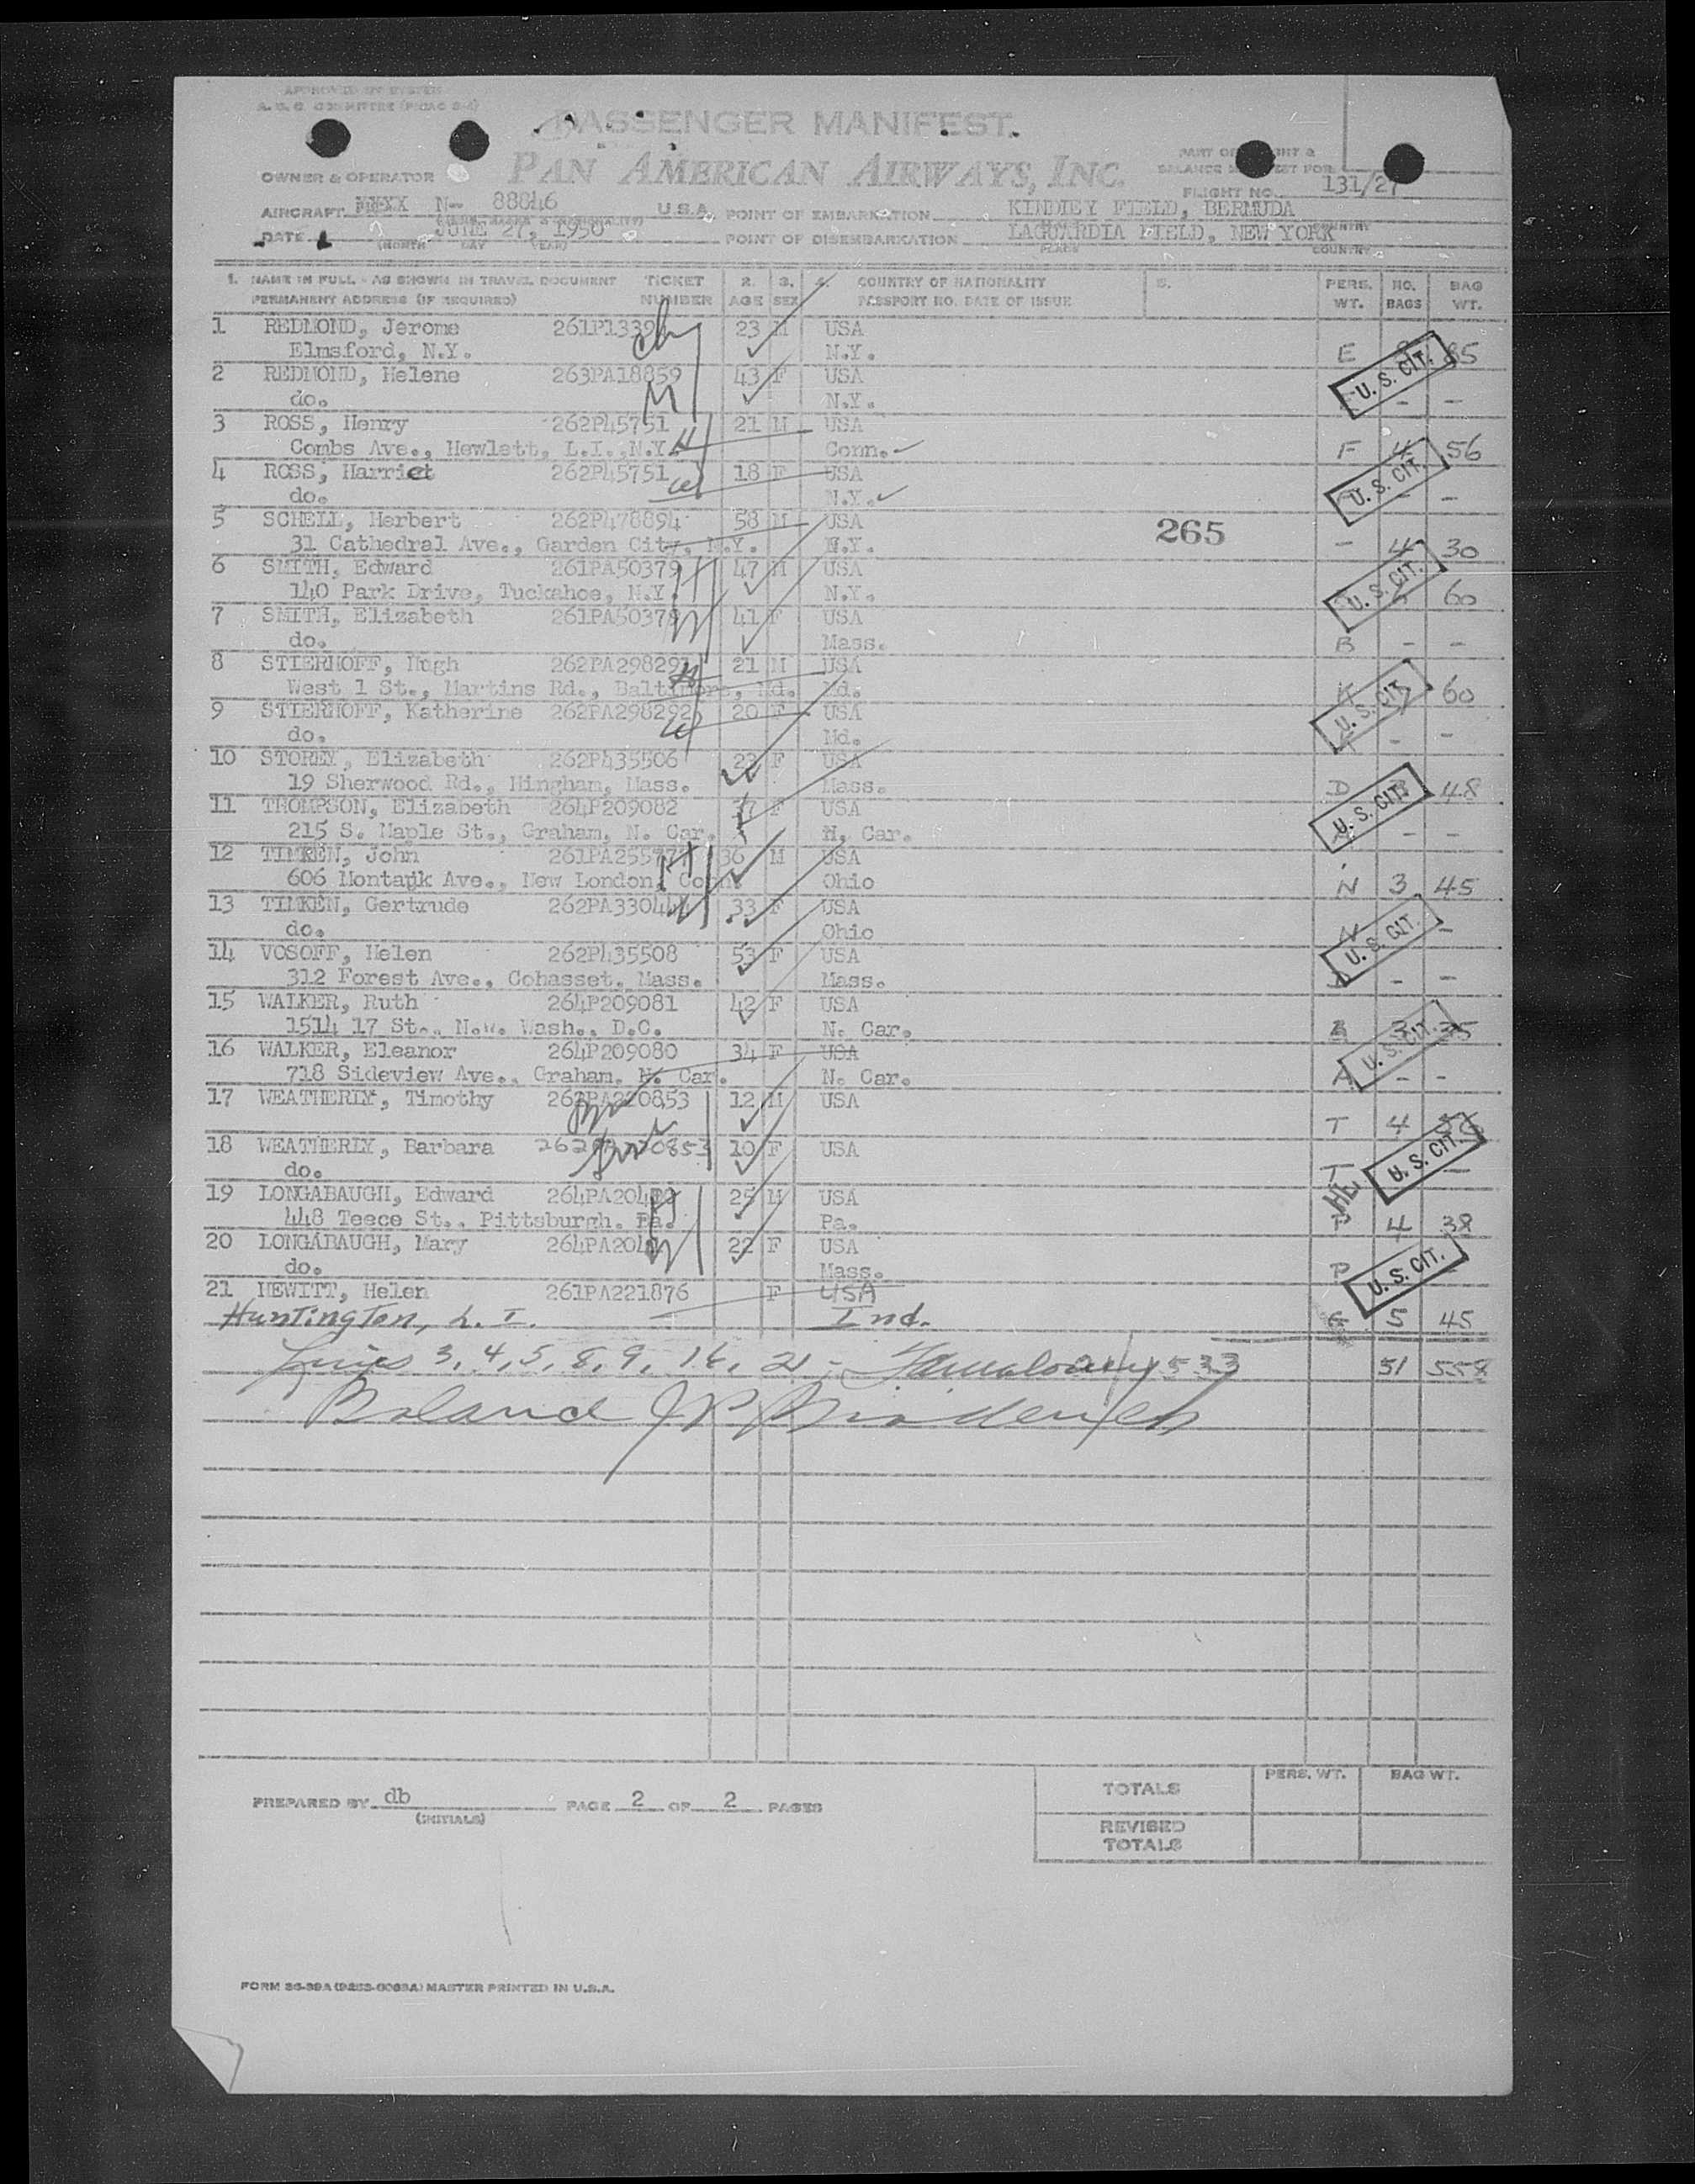 APPROVED BY SYSTEM
A. O. C. COMMITTEE (PICAO 2-4)
PASSENGER MANIFEST
PAN AMERICAN AIRWAYS, INC.
OWNER & OPERATOR
PART OF WEIGHT &
BALANCE MANIFEST FOR
FLIGHT NO. 131/27
AIRCRAFT N- 88846 U.S.A. POINT OF EMBARKATION KINDLEY FIELD, BERMUDA
DATE JUNE 27, 1950 POINT OF DISEMBARKATION LAGUARDIA FIELD, NEW YORK
(MONTH DAY YEAR) PLACE COUNTRY
1. NAME IN FULL - AS SHOWN IN TRAVEL DOCUMENT TICKET 2. 3. 4. COUNTRY OF NATIONALITY 5. PERS. NO. BAG
PERMANENT ADDRESS (IF REQUIRED) NUMBER AGE SEX PASSPORT NO. DATE OF ISSUE WT. BAGS WT.
1 REDMOND, Jerome 261P1339 23 M USA
Elmsford, N.Y. N.Y. E 85
2 REDMOND, Helene 263PA18859 43 F USA
do. N.Y. - - U. S. CIT.
3 ROSS, Henry 262P45751 21 M USA
Combs Ave., Hewlett, L.I.,N.Y. Conn. F 4 56
4 ROSS, Harriet 262P45751 18 F USA
do. N.Y. - U. S. CIT.
5 SCHELL, Herbert 262P478894 58 M USA 265
31 Cathedral Ave., Garden City, N.Y. N.Y. - 4 30
6 SMITH, Edward 261PA50379 47 M USA
140 Park Drive, Tuckahoe, N.Y. N.Y. 60 U. S. CIT.
7 SMITH, Elizabeth 261PA50379 41 F USA
do. Mass. B - -
8 STIERHOFF, Hugh 262PA298291 21 M USA
West 1 St., Martins Rd., Baltimore, Md. Md. K 60
9 STIERHOFF, Katherine 262PA298292 20 F USA
do. Md. - - U. S. CIT.
10 STOREY, Elizabeth 262P435506 23 F USA
19 Sherwood Rd., Hingham, Mass. Mass. D 48
11 THOMPSON, Elizabeth 264P209082 37 F USA
215 S. Maple St., Graham, N. Car. N. Car. - - U. S. CIT.
12 TIMKEN, John 261PA25577 36 M USA
606 Montauk Ave., New London, Conn. Ohio N 3 45
13 TIMKEN, Gertrude 262PA33044 33 F USA
do. Ohio N - U. S. CIT.
14 VOSOFF, Helen 262P435508 53 F USA
312 Forest Ave., Cohasset, Mass. Mass. D - -
15 WALKER, Ruth 264P209081 42 F USA
1514 17 St., N.W. Wash., D.C. N. Car. 3 35
16 WALKER, Eleanor 264P209080 34 F USA
718 Sideview Ave., Graham, N. Car. N. Car. A - - U. S. CIT.
17 WEATHERLY, Timothy 262PA220853 12 M USA
T 4
18 WEATHERLY, Barbara 262PA220853 10 F USA
do. T - U. S. CIT.
19 LONGABAUGH, Edward 264PA204 25 M USA
448 Teece St., Pittsburgh. Pa. Pa. P 4 38
20 LONGABAUGH, Mary 264PA204 22 F USA
do. Mass. P U. S. CIT.
21 HEWITT, Helen 261PA221876 F USA
Huntington, L. I. Ind. 5 45
Lines 3, 4, 5, 8, 9, 16, 21 - 533 51 558
PREPARED BY db PAGE 2 OF 2 PAGES
(INITIALS)
PERS. WT. BAG WT.
TOTALS
REVISED
TOTALS
FORM 36-39A (9253-0068A) MASTER PRINTED IN U.S.A.